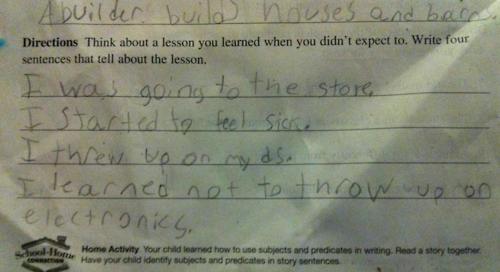 A builder build houses and barns
Directions Think about a lesson you learned when you didn't expect to. Write four
sentences that tell about the lesson.
I was going to the store.
I started to feel sick.
I threw up on my ds.
I learned not to throw up on
electronics.
School-Home
CONNECTION
Home Activity Your child learned how to use subjects and predicates in writing. Read a story together.
Have your child identify subjects and predicates in story sentences.